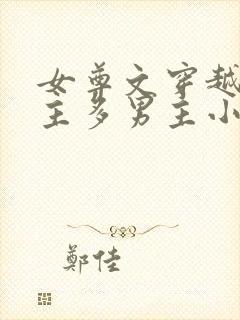 女尊文穿越
主多男主小
鄭佳